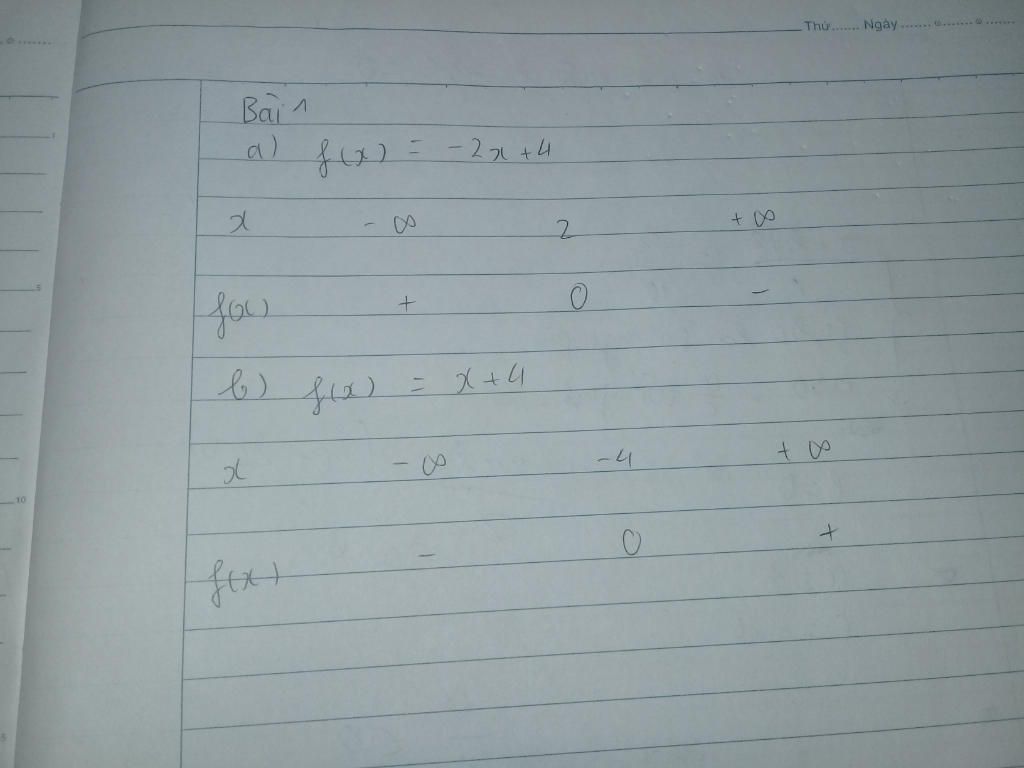 Thứ....... Ngày.......
Bài 1
a) f(x) = -2x+4
x -∞ 2 +∞
f(x) + 0 -
b) f(x) = x+4
x -∞ -4 +∞
f(x) - 0 +
1
5
10